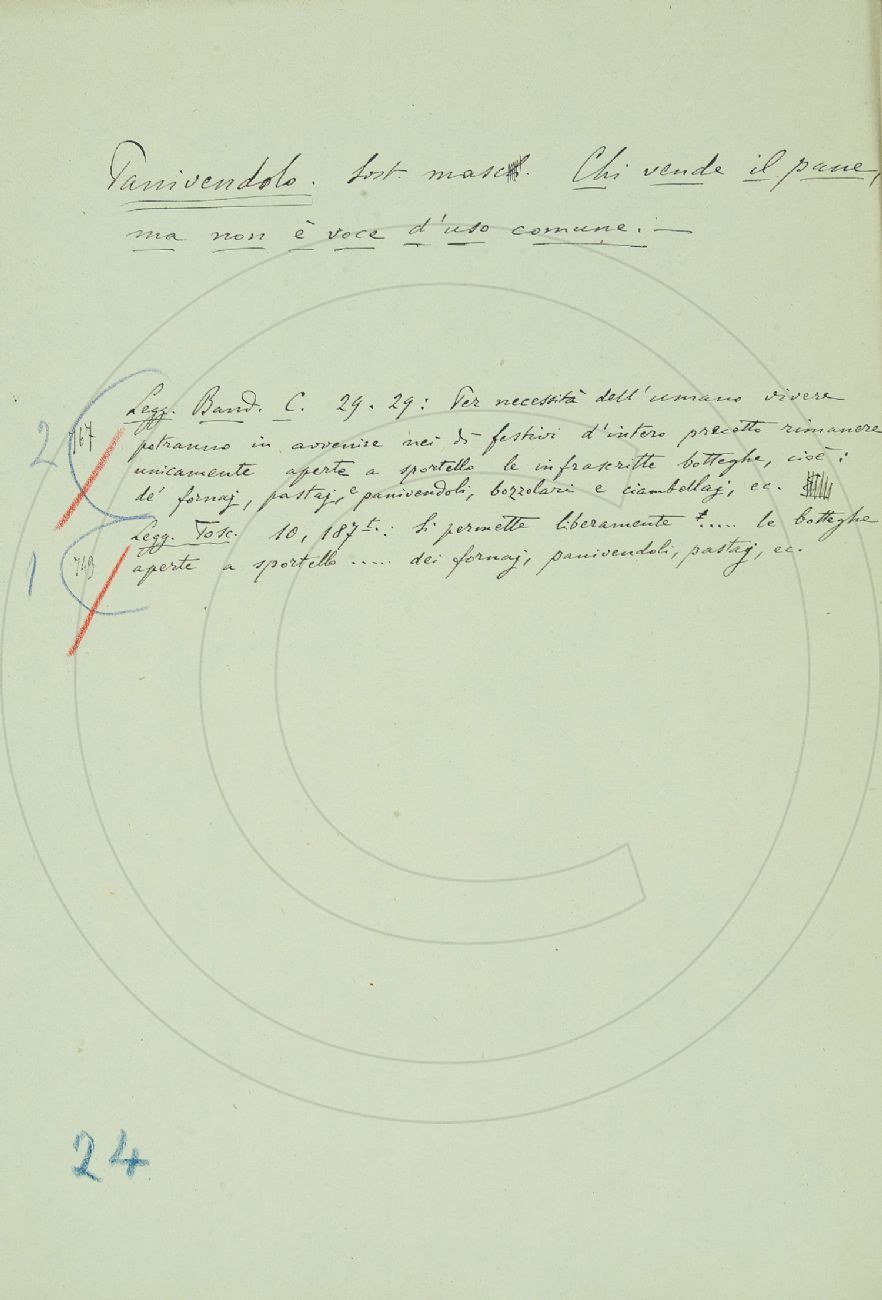 Panivendolo. Sost. masc. Chi vende il pane,
ma non è voce d'uso comune. —
2 167 Legg. Band. C. 29. 29: Per necessità dell'umano vivere
potranno in avvenire nei dì festivi d'intero precetto rimanere
unicamente aperte a sportello le infrascritte botteghe, cioè:
de' fornaj, pastaj, e panivendoli, bozzolari e ciambellaj, ec.
Legg. Tosc. 10, 187 t.: Si permette liberamente ..... le botteghe
1 749 aperte a sportello ..... dei fornaj, panivendoli, pastaj, ec.
24